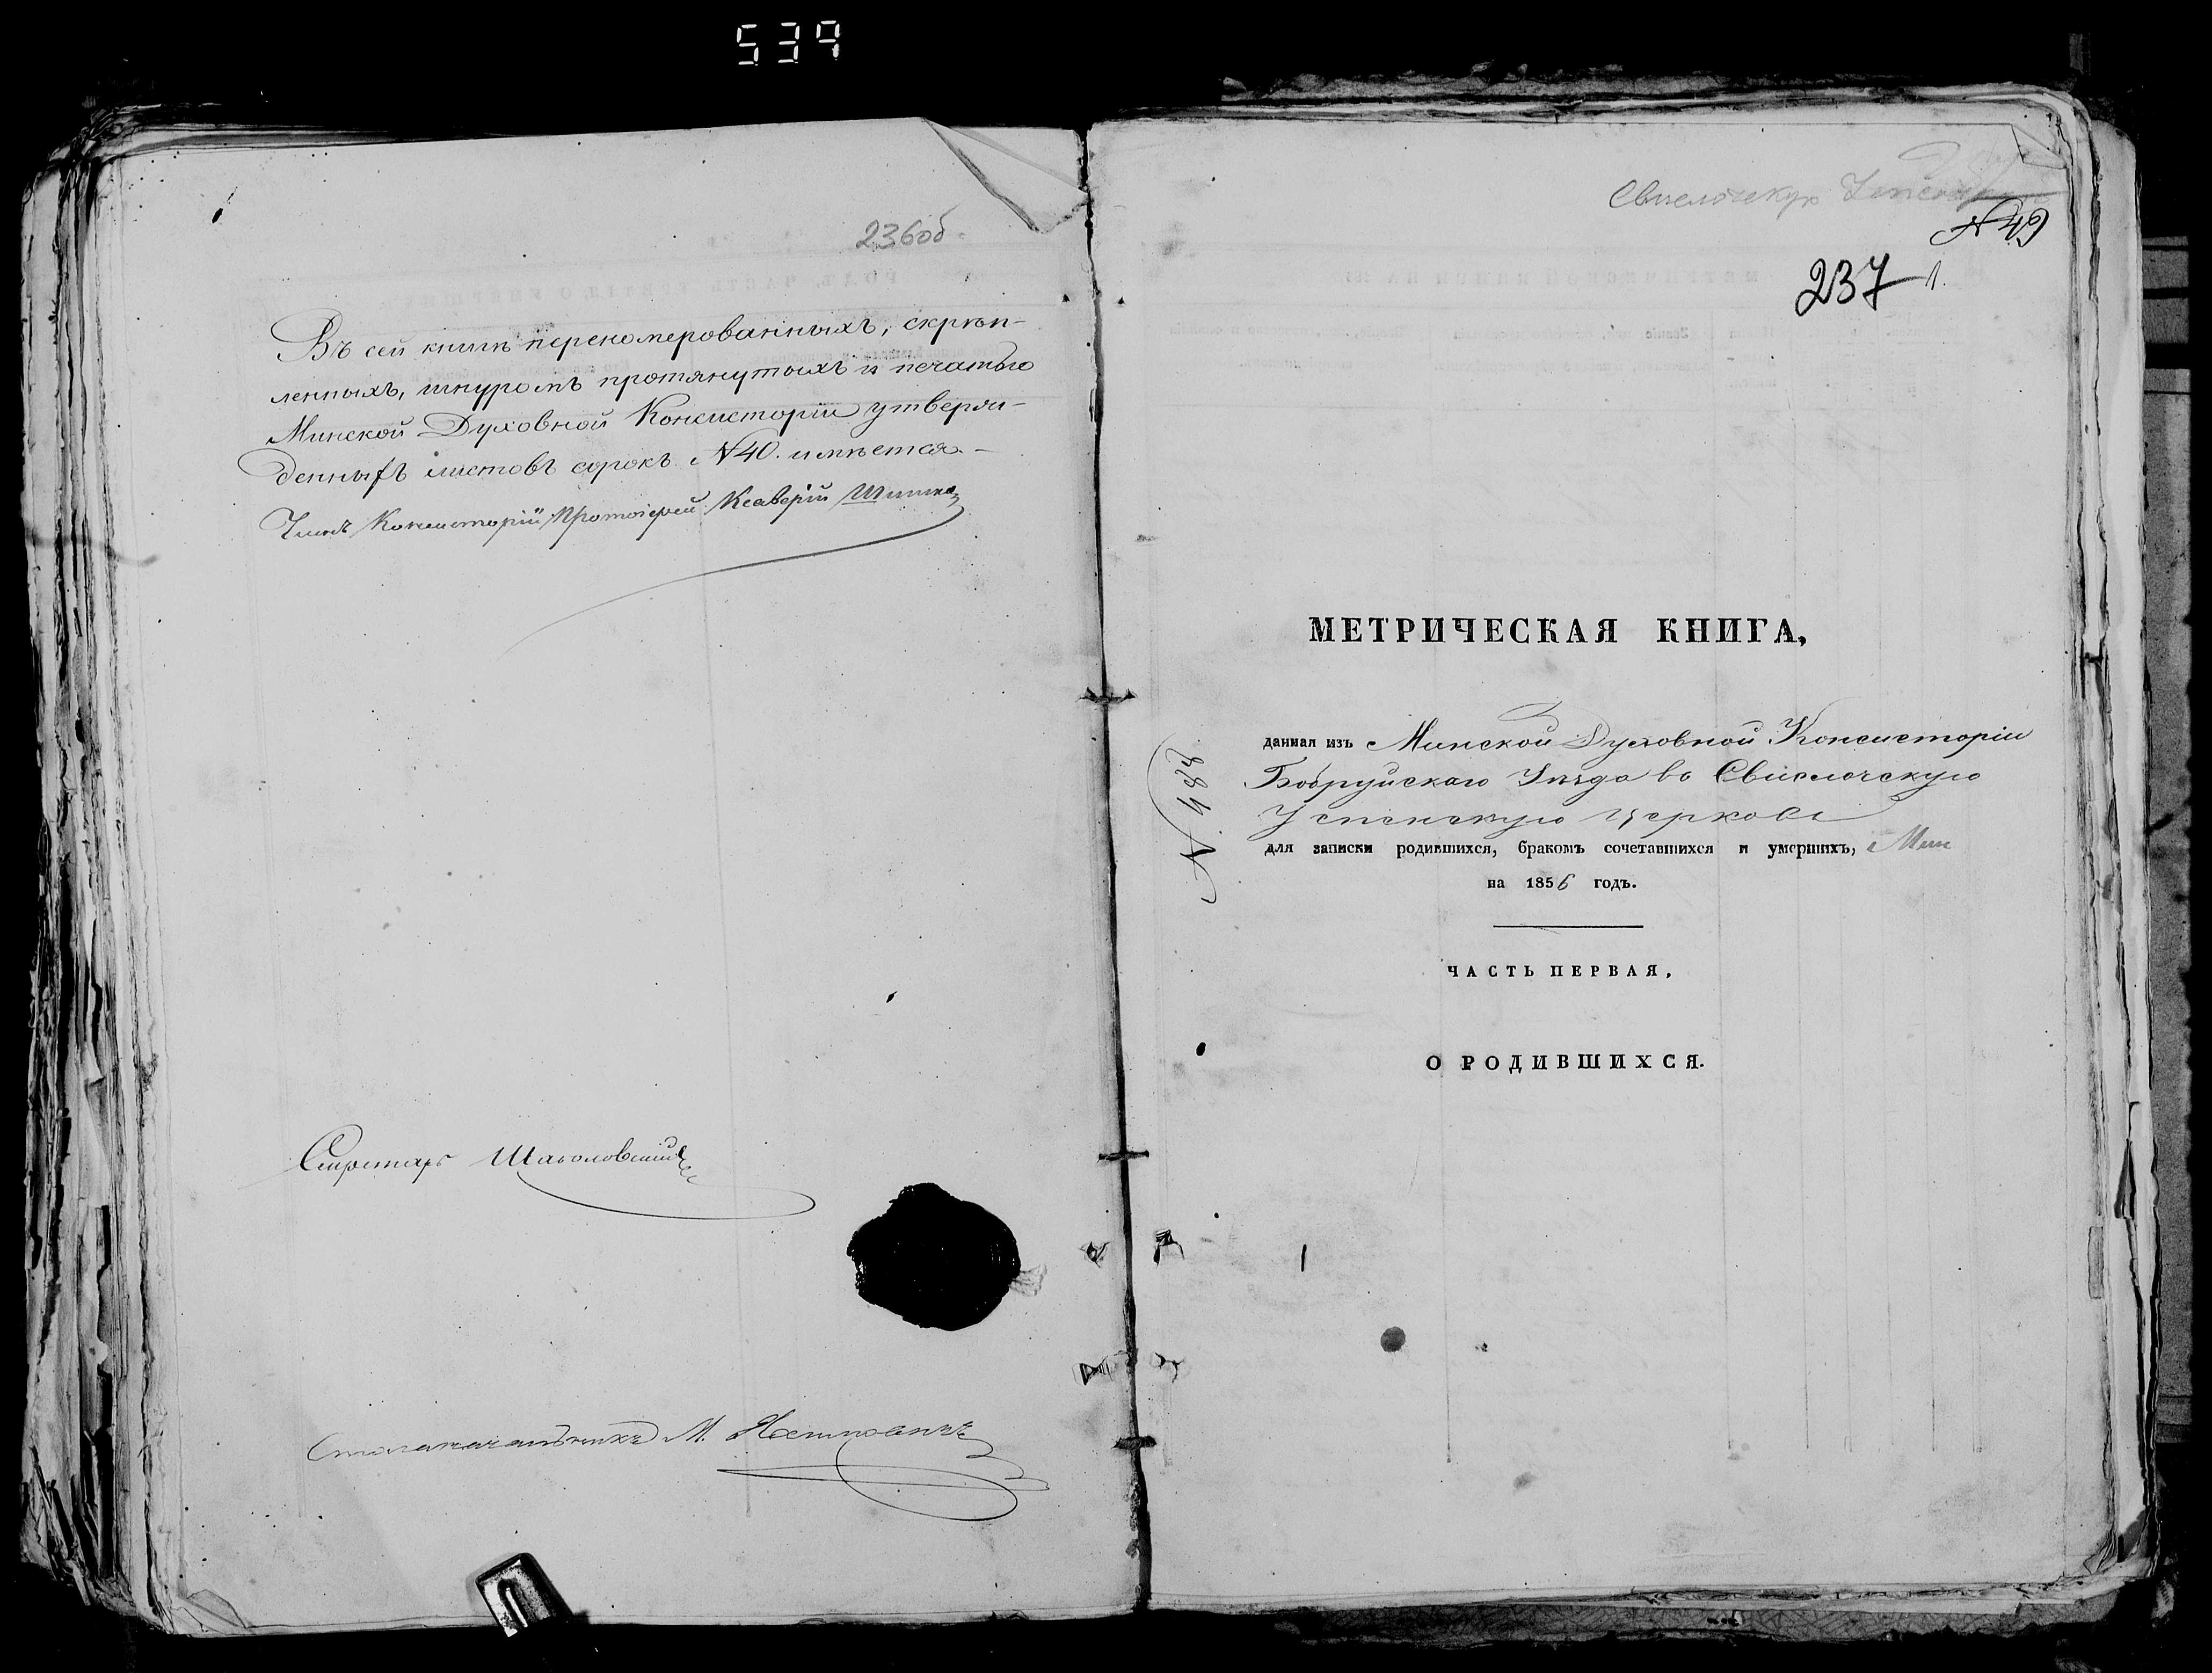 539
236об.
Въ сей книгѣ перенумерованныхъ, скрѣп-
ленныхъ, шнуромъ протянутыхъ и печатью
Минской Духовной Консисторіи утверж-
денныхъ листовъ сорокъ N 40. имѣется.
Членъ Консисторіи Протоіерей Ксаверій
Секретарь
Столоначальникъ М.
N 49
237 1.
МЕТРИЧЕСКАЯ КНИГА,
данная изъ Минской Духовной Консисторіи
Бобруйскаго Уѣзда въ Свислочскую
Успенскую церковь
для записки родившихся, бракомъ сочетавшихся и умершихъ,
на 1856 годъ.
ЧАСТЬ ПЕРВАЯ,
О РОДИВШИХСЯ.